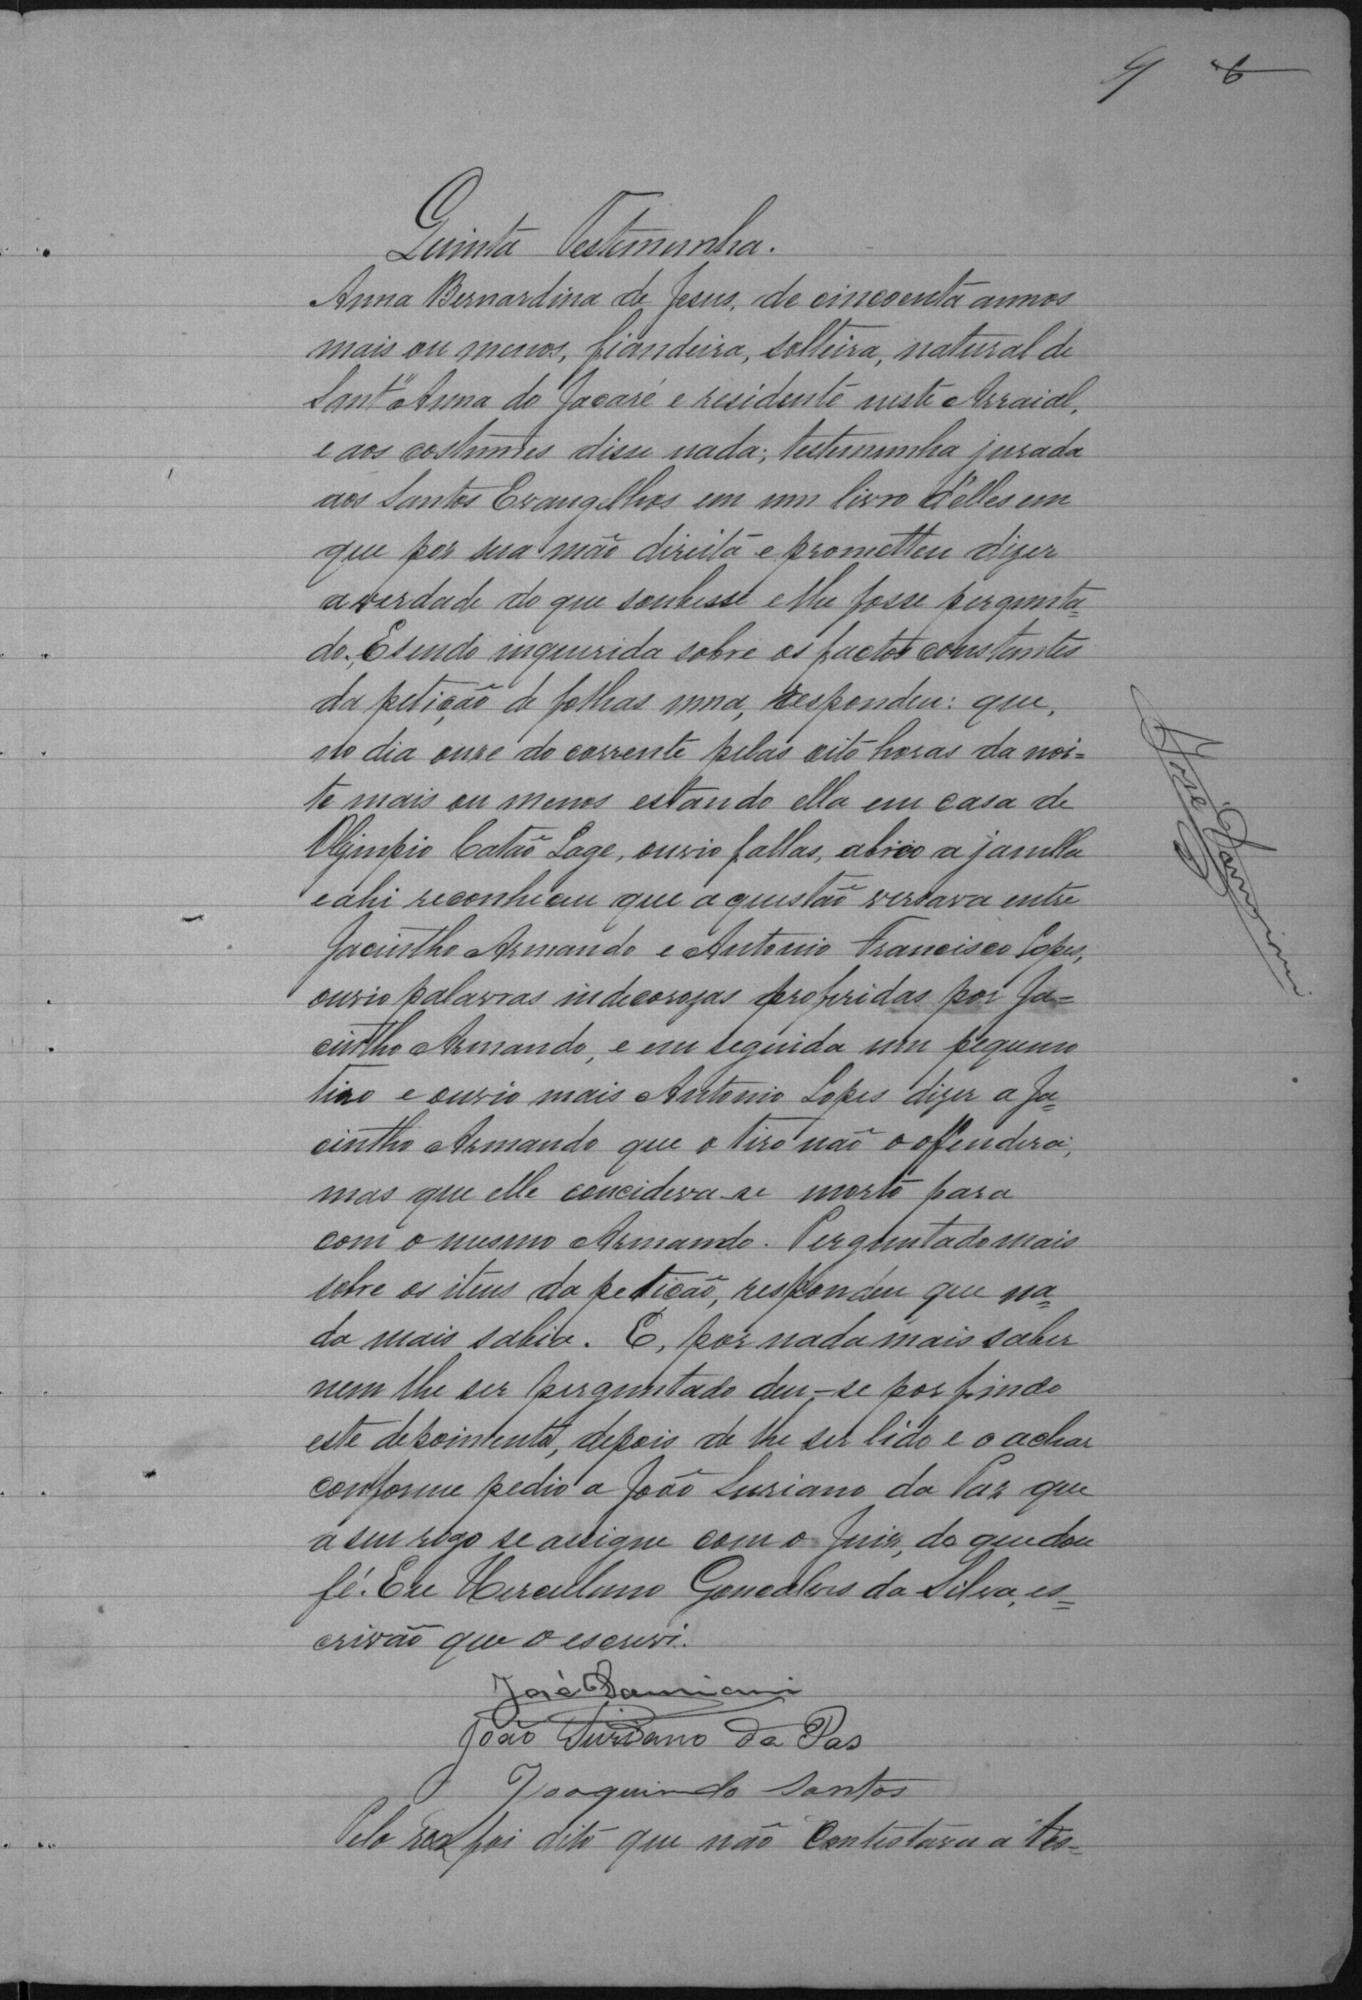 Quinta Testemunha.
Anna Bernardina de Jesus, de cincoenta annos
mais ou menos, fiandeira, solteira, natural de
Sant'Anna do Jacaré e residente neste Arraial,
e aos costumes disse nada; testemunha jurada
aos Santos Evangelhos em um livro d'elles em
que por sua mão direita e prometteu dizer
a verdade do que soubesse e lhe fosse pergunta=
do. E sendo inquerida sobre os factos constantes
da petição de folhas uma, respondeu: que,
no dia onze do corrente pelas oito horas da noi=
te mais ou menos estando ella em casa de
Olympio Catão Lage, ouvio fallas, abrio a janella
e ahi reconheceu que a questão versava entre
Jacintho Armando e Antonio Francisco Lopes,
ouvio palavras indecorozas proferidas por Ja=
cintho Armando, e em seguida um pequeno
tiro e ouvio mais Antonio Lopes dizer a Ja=
cintho Armando que o tiro não o offendera,
mas que elle concidera-se morto para
com o mesmo Armando. Perguntado mais
sobre os itens da petição, respondeu que na=
da mais sabia. E, por nada mais saber
nem lhe ser perguntado deu-se por findo
este depoimento, depois de lhe ser lido e o achar
conforme pedio a João Suriano da Paz que
a seu rogo se assigne com o Juiz, do que dou
fé. Eu Herculano Goncalves da Silva, es=
crivão que o escrevi.
José Damiani
João Suriano da Pas
Joaquim do Santos
Pelo reo foi dito que não contestava a tes=
José Damiani